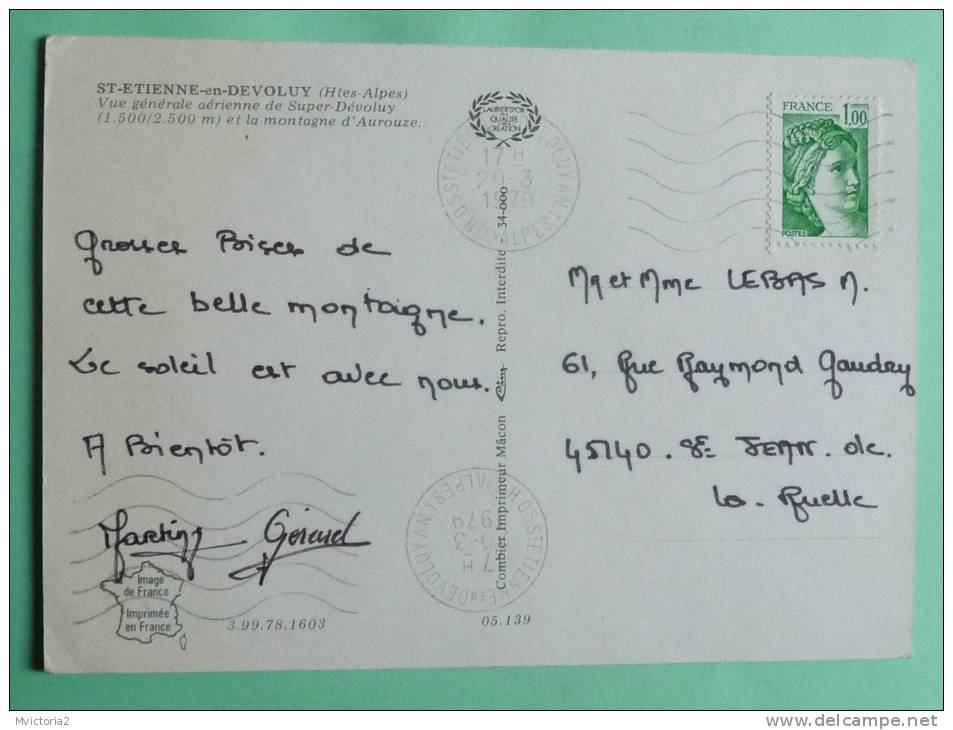 ST-ETIENNE-en-DEVOLUY (Htes-Alpes)
Vue générale aérienne de Super-Dévoluy
(1.500/2.500 m) et la montagne d'Aurouze.
LAURIER D'OR
QUALITE
CREATION
FRANCE
1,00
POSTES
17 H
20-3
1979
Grosses Bises de
cette belle montaigne.
Le soleil est avec nous.
A Bientôt.
Martine Gérard
Mr et Mme LEBAS M.
61, Rue Raymond Gaudry
45140. St JEAN. de.
la. Ruelle
Combier Imprimeur Mâcon Cim Repro. Interdite 34-000
ST ETIENNE EN DEVOLUY
Image
de France
Imprimée
en France
3.99.78.1603
05.139
Mvictoria2
delcampe.net